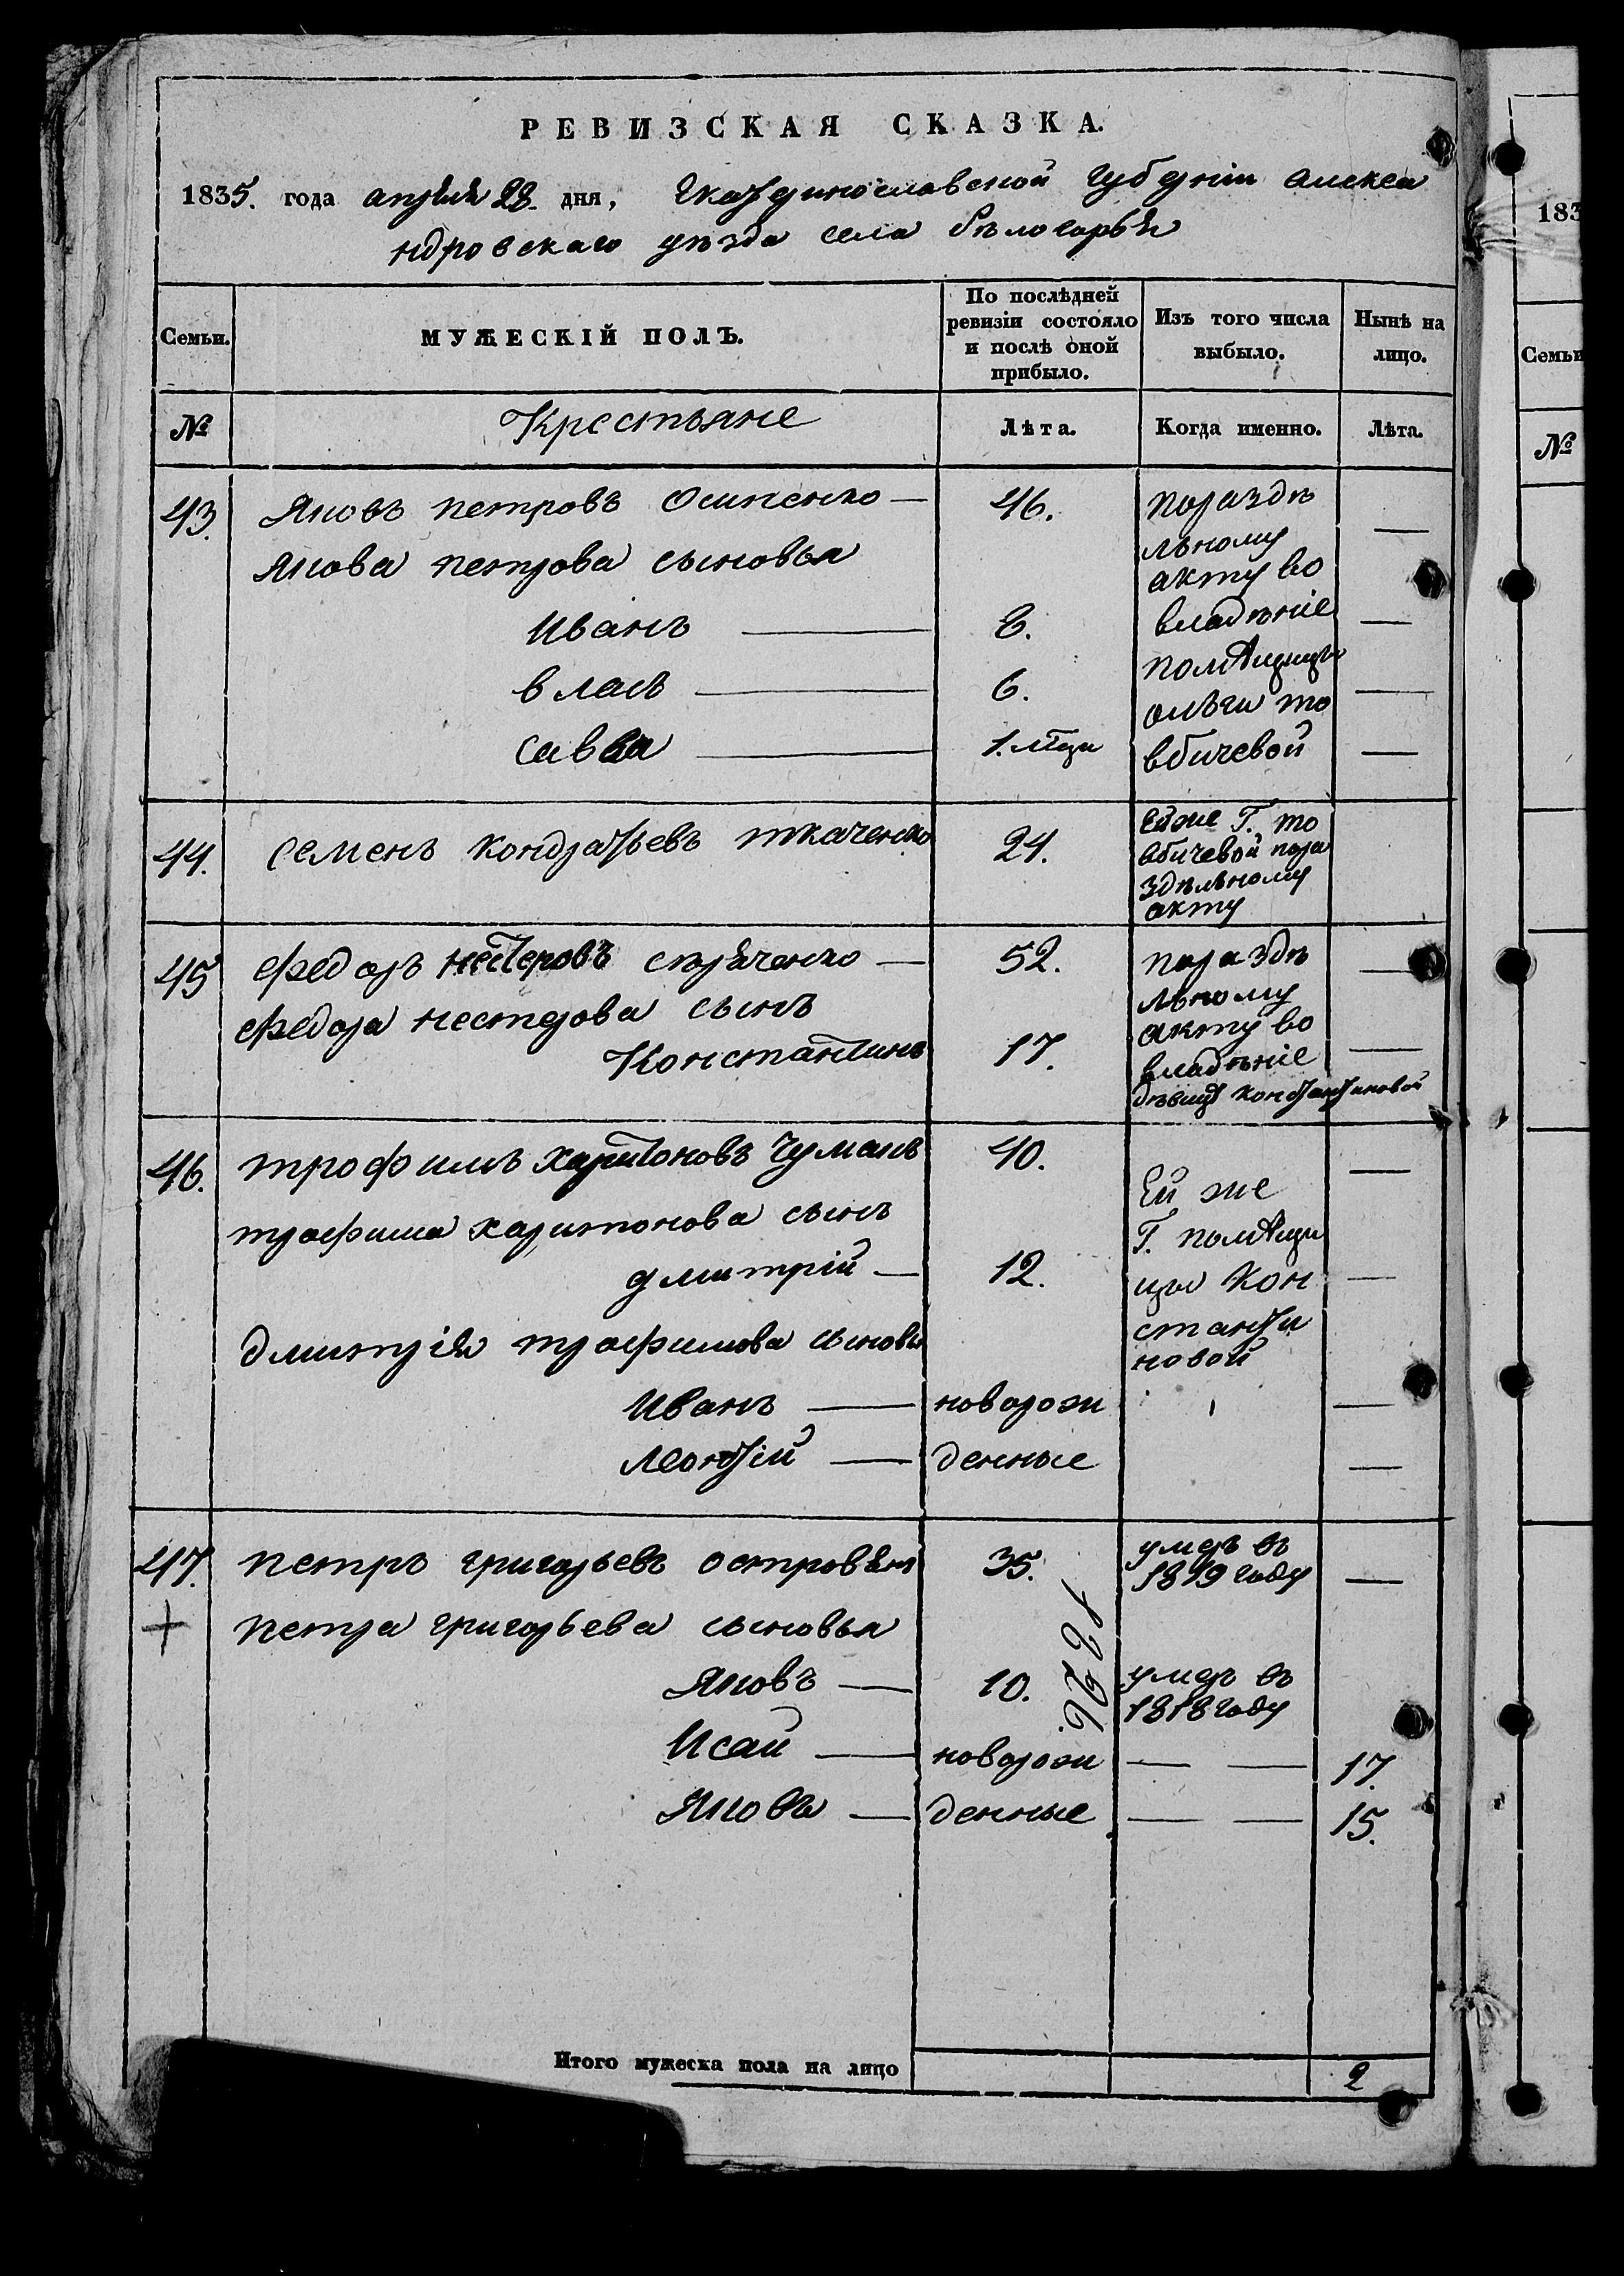 РЕВИЗСКАЯ СКАЗКА.
1835. года апреля 28. дня, Екатеринославской губерніи Алекса
ндровскаго уѣзда села бѣлогорья
Семьи.
МУЖЕСКІЙ ПОЛЪ.
По послѣдней ревизіи состояло и послѣ оной прибыло.
Изъ того числа выбыло.
Нынѣ на лицо.
№ Крестьяне Лѣта. Когда именно. Лѣта.
43. Яковъ петровъ Осипенко — 46. пораздѣ —
льному
Якова петрова сыновья акту во
Иванъ — 8. владѣніе —
власъ — 6. помѣщицы —
ольги то
савва — 1. мѣця вбичевой —
44. семенъ кондратьевъ ткаченко 24. ейже Г. то
вбичевой пора
здѣльному
акту
45 федоръ нестеровъ — 52. пораздѣ —
льному
федора нестерова сынъ акту во
Константинъ 17. владѣніе —
девицы константиновой
46. трофимъ харитоновъ Чумакъ 40. —
Ей же
трофима харитонова сынъ Г. помѣщи
дмитрій — 12. цы Кон —
дмитрія трофимова сыновья станти
новой
Иванъ — новорож —
леонтій — денные —
47. петръ григорьевъ островѣнъ 35. умеръ въ —
1819 году
+ петра григорьева сыновья
Яковъ — 10. умеръ въ
1818 году
Исай — новорож — — 17.
Яковъ — денные — — 15.
Итого мужеска пола на лицо 2
183
Семьи
№